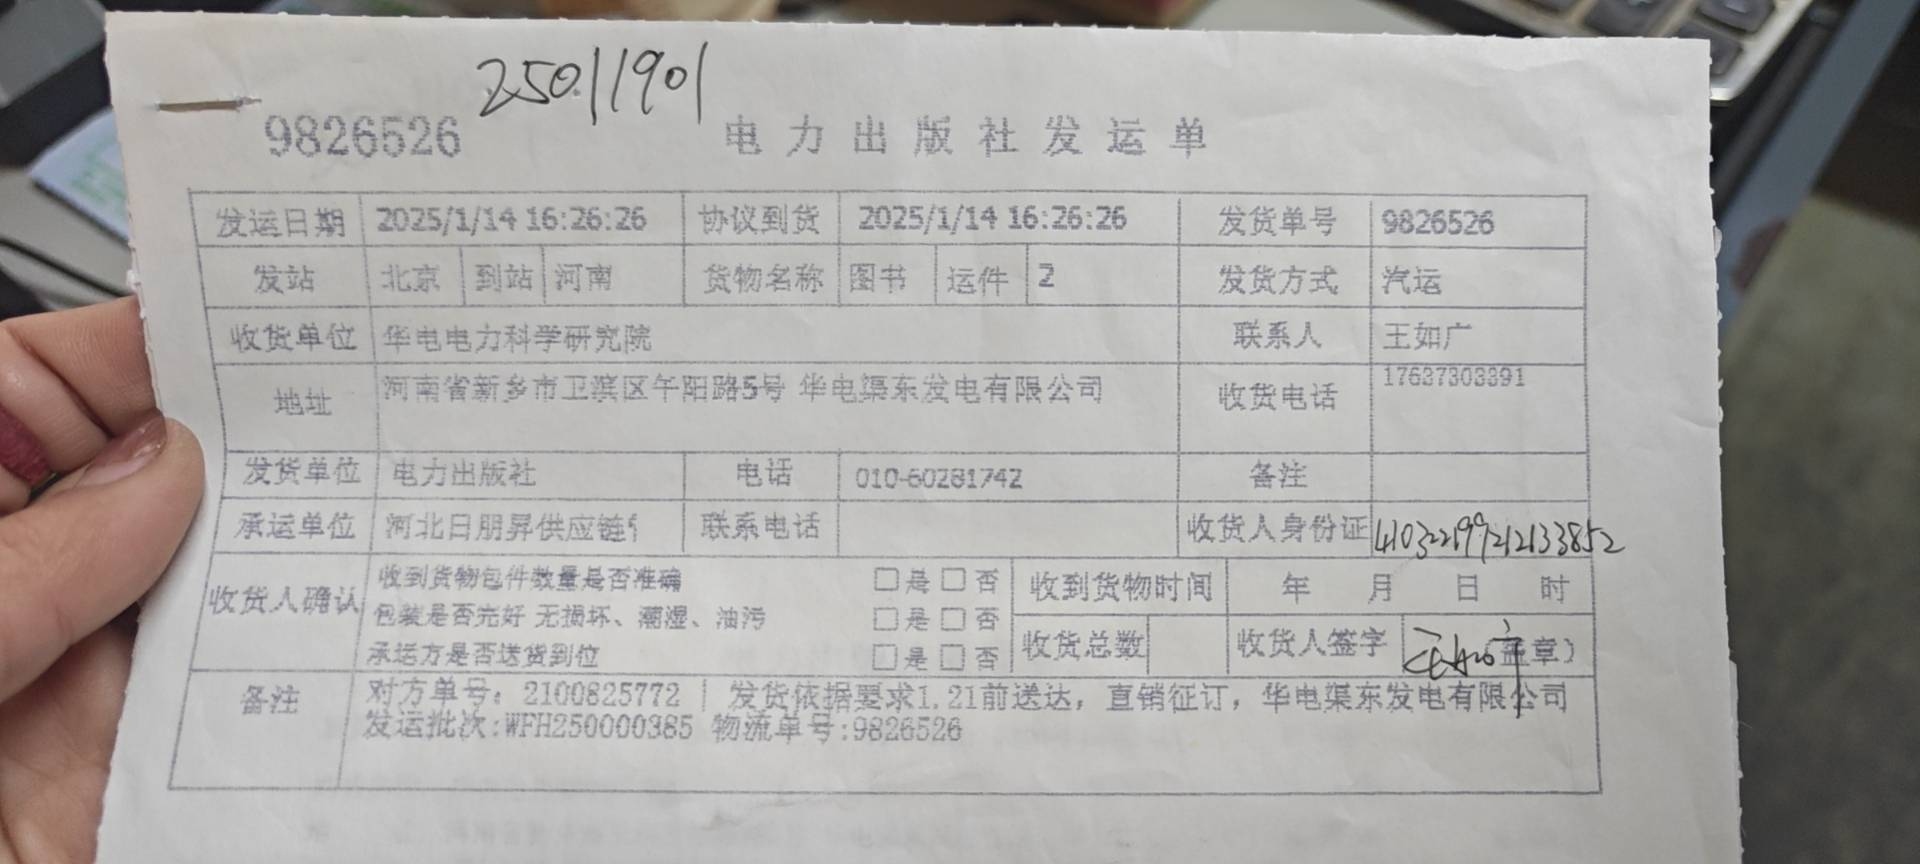 25011901
9826526 电力出版社发运单
发运日期 2025/1/14 16:26:26 协议到货 2025/1/14 16:26:26 发货单号 9826526
发站 北京 到站 河南 货物名称 图书 运件 2 发货方式 汽运
收货单位 华电电力科学研究院 联系人 王如广
地址 河南省新乡市卫滨区午阳路5号 华电渠东发电有限公司 收货电话 17637303391
发货单位 电力出版社 电话 010-60281742 备注
承运单位 河北日朋昇供应链 联系电话 收货人身份证 410322199212133852
收货人确认 收到货物包件数量是否准确 □是□否 收到货物时间 年 月 日 时
包装是否完好 无损坏、潮湿、油污 □是□否
承运方是否送货到位 □是□否 收货总数 收货人签字 盖章)
备注 对方单号: 2100825772 | 发货依据要求1.21前送达, 直销征订, 华电渠东发电有限公司
发运批次:WFH250000385 物流单号:9826526